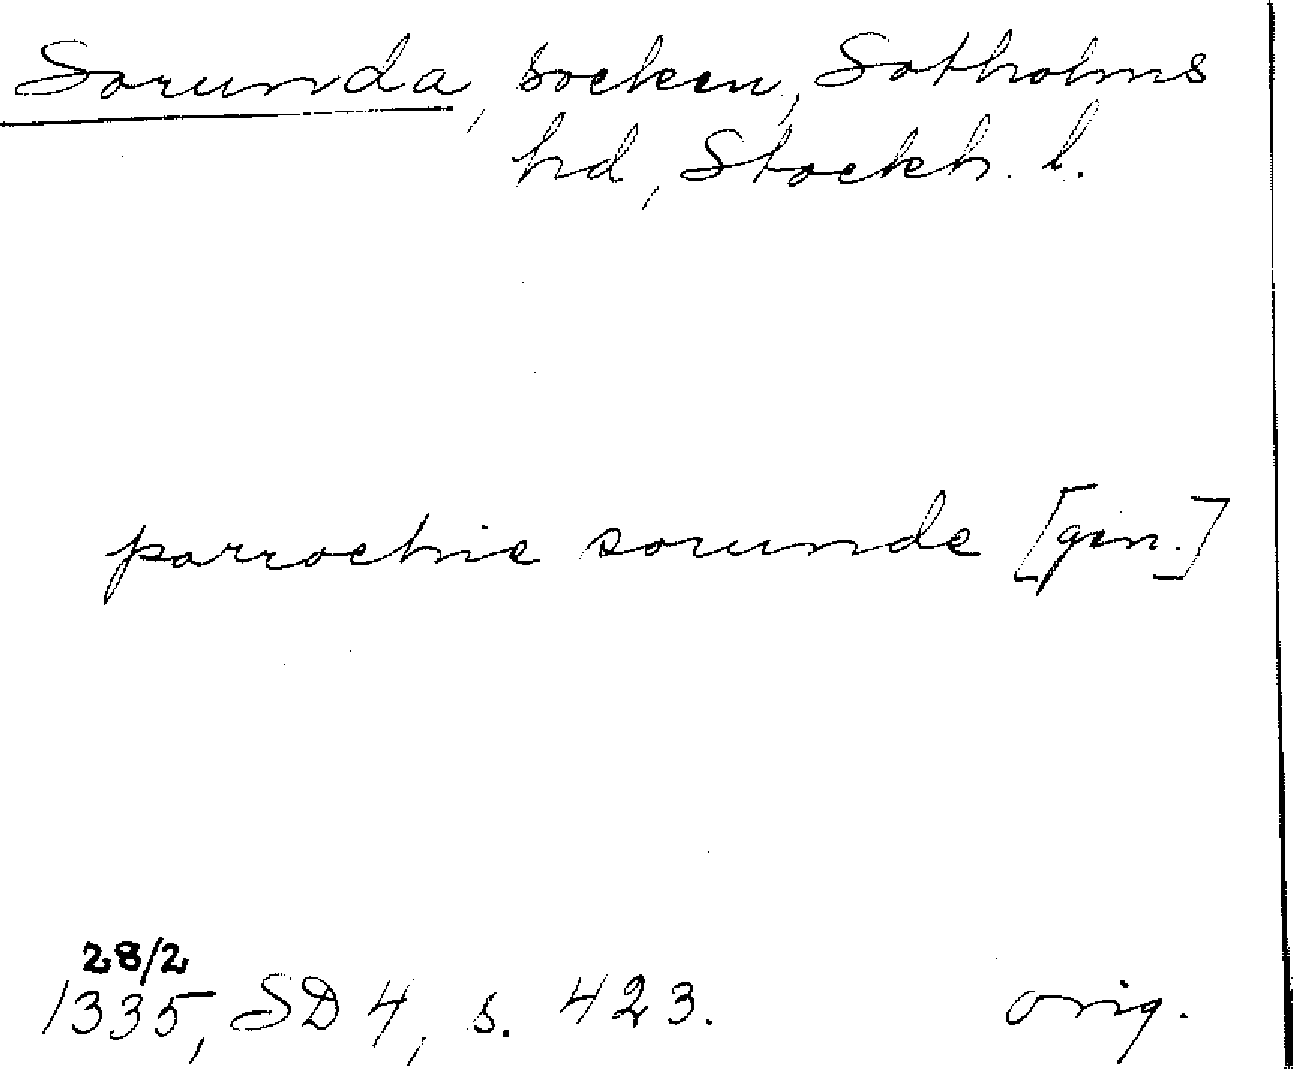 Sorunda, socken, Sotholms
hd, Stockh. l.
parrochie sorunde [gen.]
28/2
1335, SD 4, s. 423. orig.